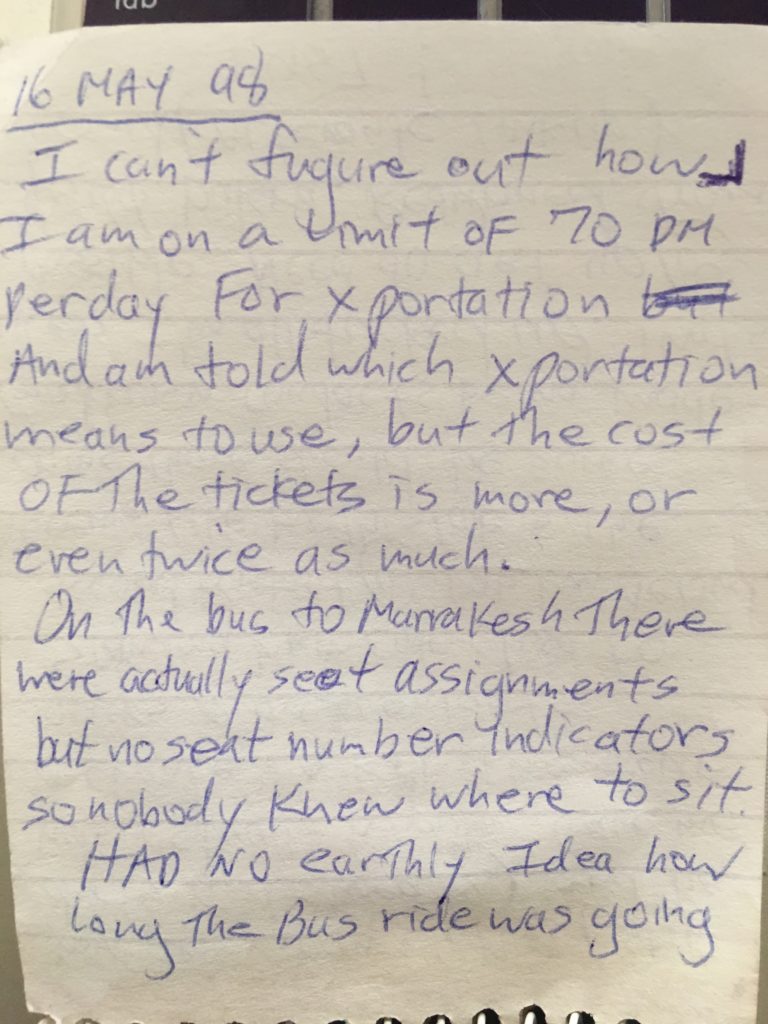 Tab
16 MAY 98
I can't fugure out how
I am on a Limit OF 70 DM
per day For xportation but
And am told which xportation
means to use, but the cost
OF The tickets is more, or
even twice as much.
On The bus to Marrakesh There
were actually seat assignments
but no seat number indicators
so nobody knew where to sit.
HAD NO earthly Idea how
long The Bus ride was going